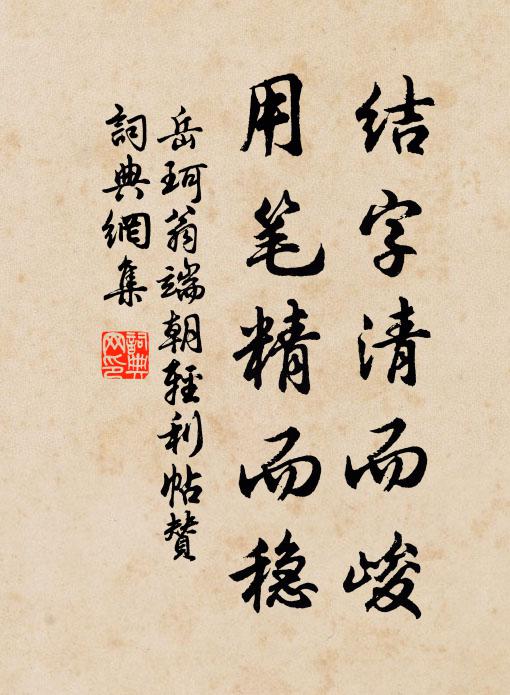 结字清而峻
用笔精而稳
岳珂翁端朝轻利帖赞
词典網集
詞典網印